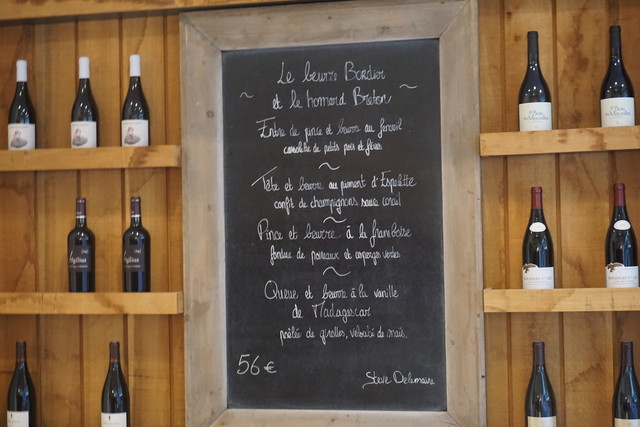 Le beurre Bordier
et le homard Breton
Entre de pince et beurre au fenouil
cassolette de petits pois et fèves
Tête et beurre au piment d'Espelette
confit de champignons sous corail
Pince et beurre à la framboise
fondue de poireaux et asperges vertes
Queue et beurre à la vanille
de Madagascar
poêlée de girolles, velouté de maïs.
56€
Steve Delamaire